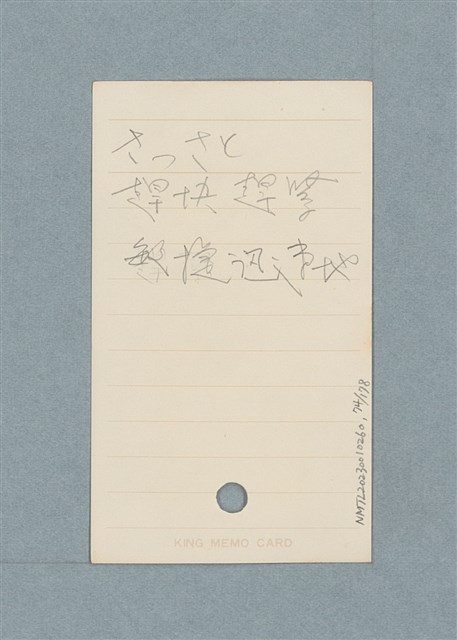 さっさと
趕快 趕緊
敏捷迅速地
KING MEMO CARD
NMTL20230010260, 74/178